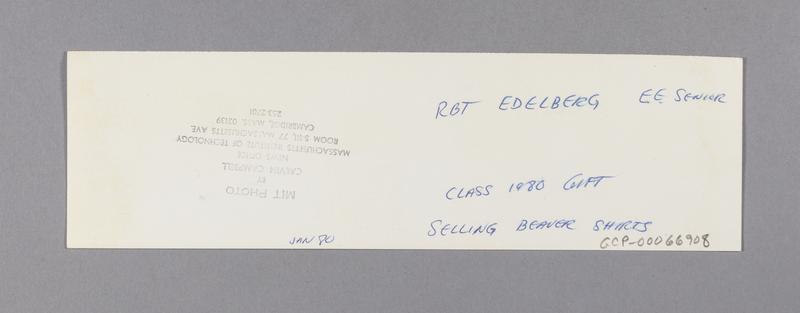 RBT EDELBERG E.E. SENIOR
CLASS 1980 GIFT
SELLING BEAVER SHIRTS
GCP-00066908
JAN 80
MIT PHOTO
BY
CALVIN CAMPBELL
NEWS OFFICE
MASSACHUSETTS INSTITUTE OF TECHNOLOGY
ROOM 5-111, 77 MASSACHUSETTS AVE.
CAMBRIDGE, MASS. 02139
253-2701